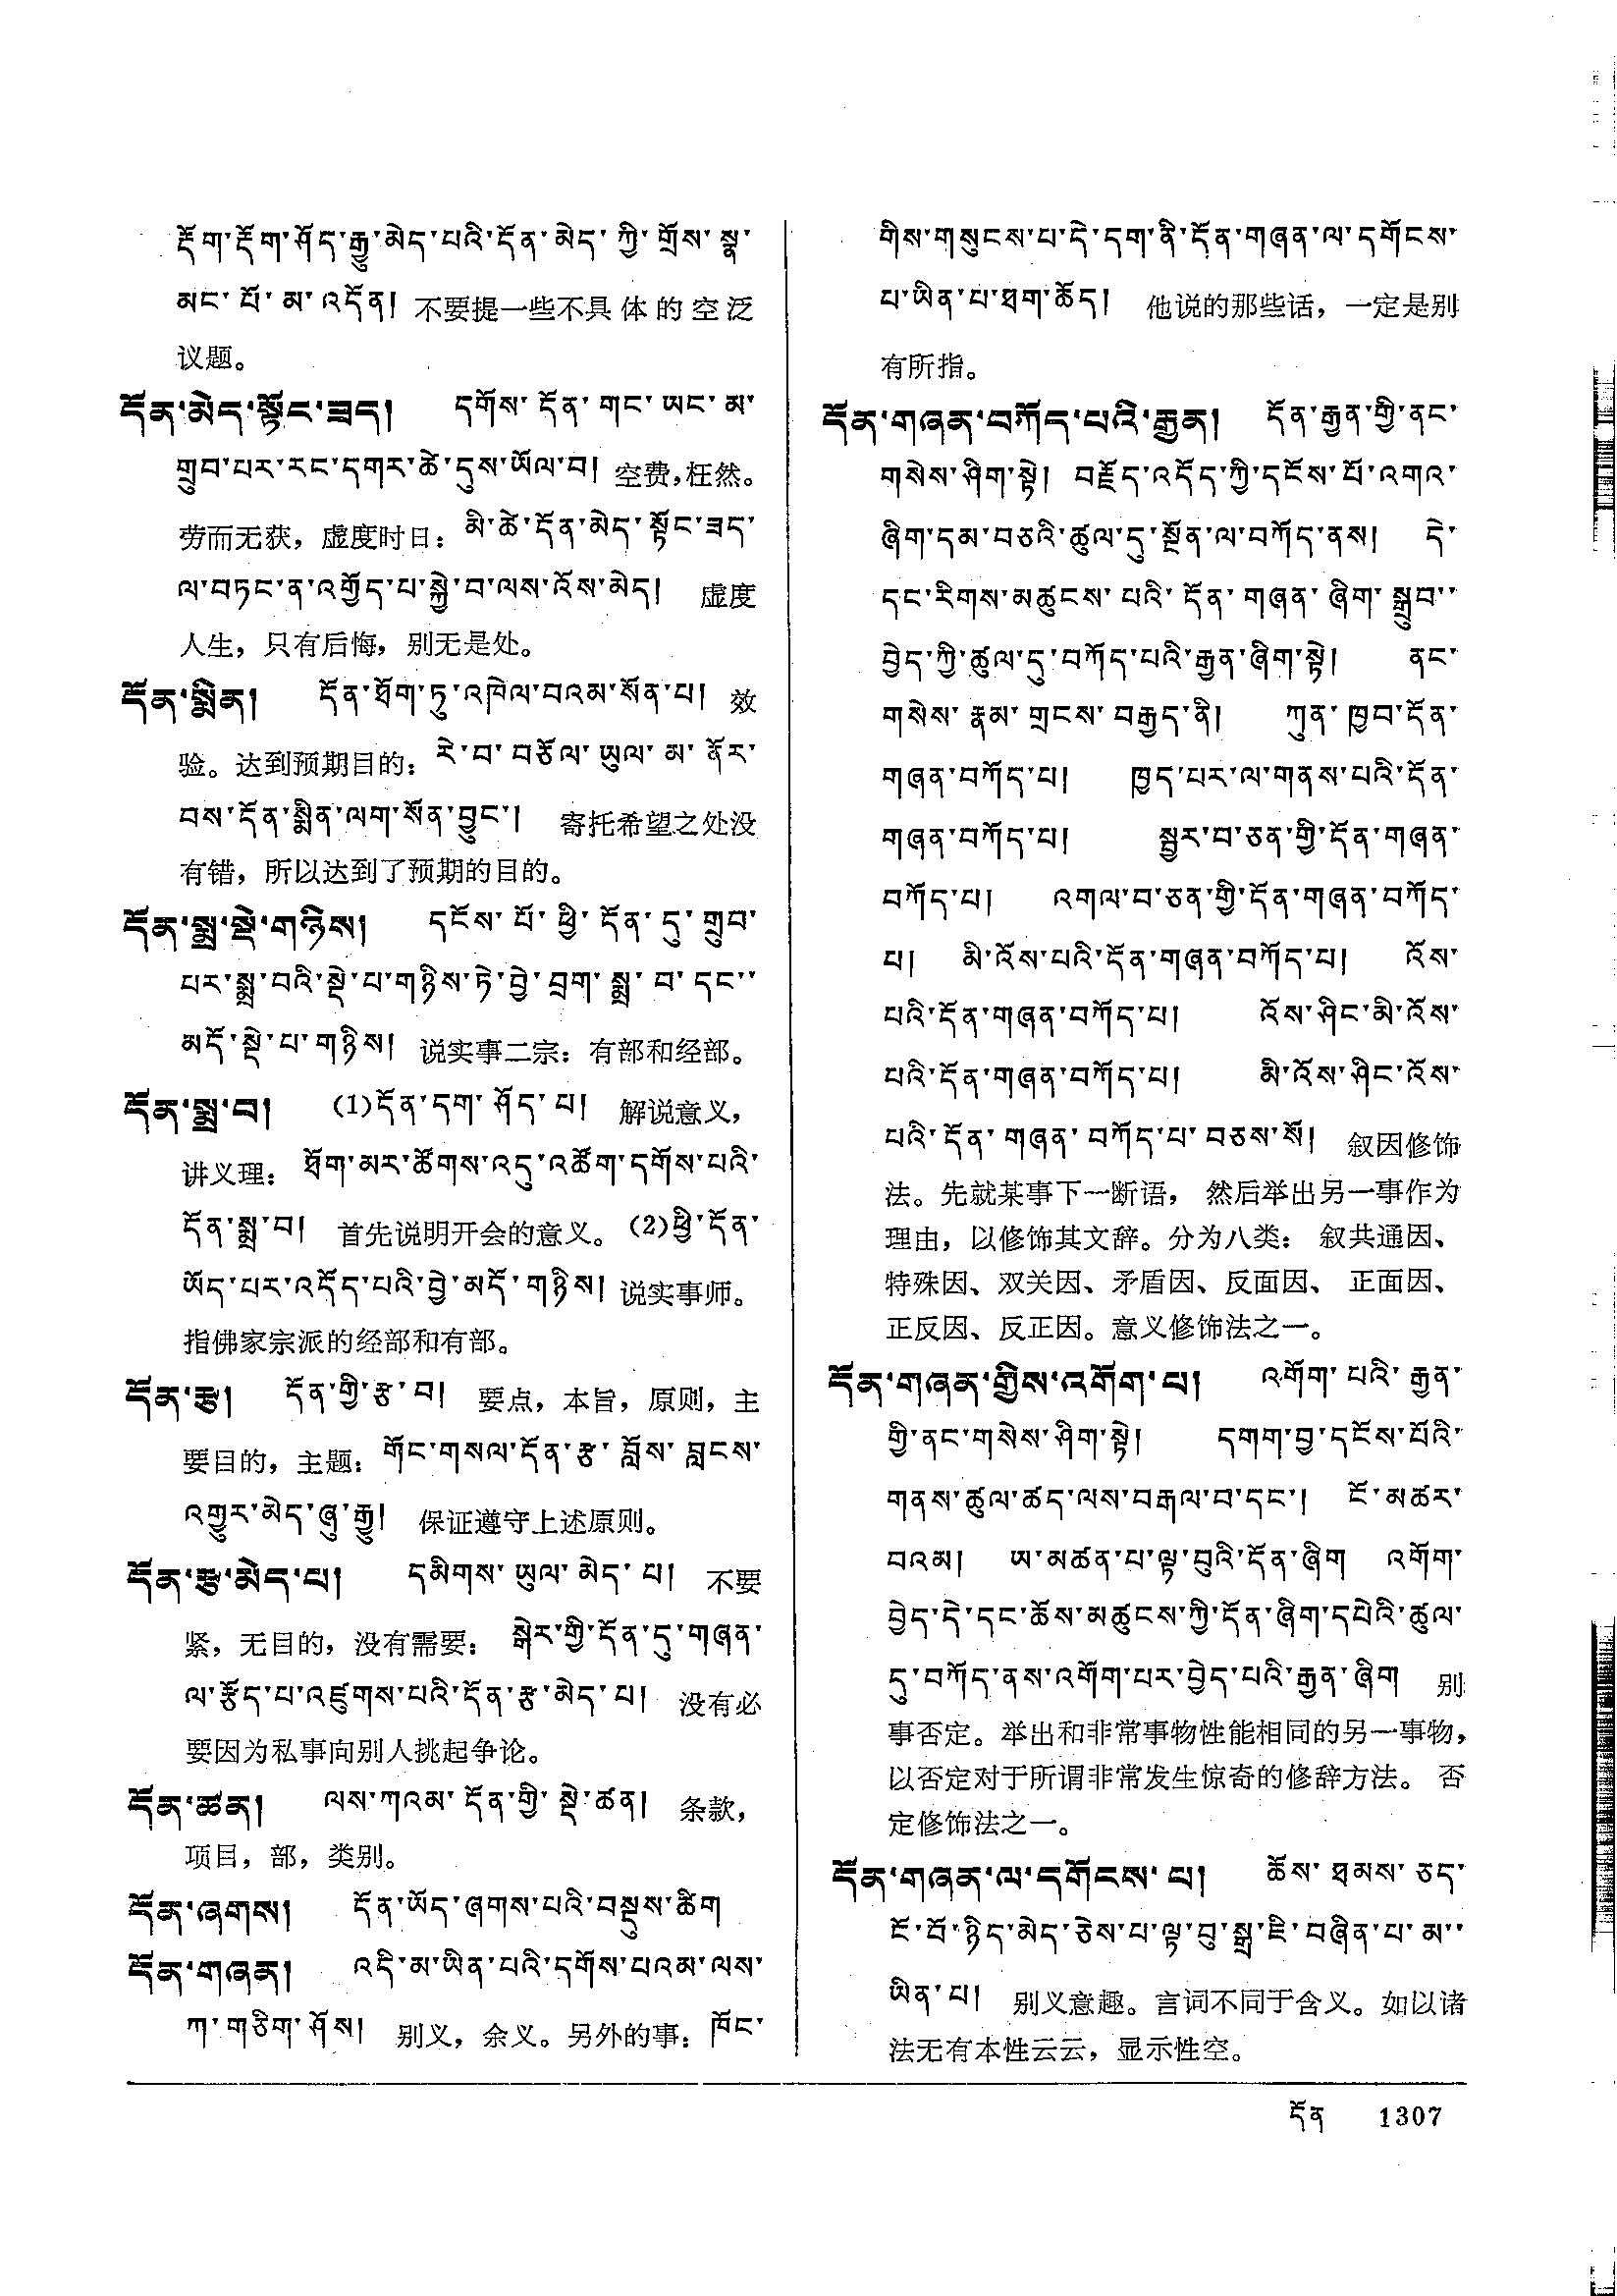 རྡོག་རྡོག་ཤོད་རྒྱུ་མེད་པའི་དོན་མེད་ཀྱི་གྲོས་སྣ་
མང་པོ་མ་འདོན། 不要提一些不具体的空泛
议题。
དོན་མེད་སྟོང་ཟད། དགོས་དོན་གང་ཡང་མ་
གྲུབ་པར་རང་དགར་ཚེ་དུས་ཡོལ་བ། 空费，枉然。
劳而无获，虚度时日：མི་ཚེ་དོན་མེད་སྟོང་ཟད་
ལ་བཏང་ན་འགྱོད་པ་སྐྱེ་བ་ལས་འོས་མེད། 虚度
人生，只有后悔，别无是处。
དོན་སྨིན། དོན་ཐོག་ཏུ་འཁེལ་བའམ་སོན་པ། 效
验。达到预期目的：རེ་བ་བཅོལ་ཡུལ་མ་ནོར་
བས་དོན་སྨིན་ལག་སོན་བྱུང་། 寄托希望之处没
有错，所以达到了预期的目的。
དོན་སྨྲ་སྡེ་གཉིས། དངོས་པོ་ཕྱི་དོན་དུ་གྲུབ་
པར་སྨྲ་བའི་སྡེ་པ་གཉིས་ཏེ་བྱེ་བྲག་སྨྲ་བ་དང་་
མདོ་སྡེ་པ་གཉིས། 说实事二宗：有部和经部。
དོན་སྨྲ་བ། (1)དོན་དག་ཤོད་པ། 解说意义，
讲义理：ཐོག་མར་ཚོགས་འདུ་འཚོག་དགོས་པའི་
དོན་སྨྲ་བ། 首先说明开会的意义。(2)ཕྱི་དོན་
ཡོད་པར་འདོད་པའི་བྱེ་མདོ་གཉིས། 说实事师。
指佛家宗派的经部和有部。
དོན་རྩ། དོན་གྱི་རྩ་བ། 要点，本旨，原则，主
要目的，主题：གོང་གསལ་དོན་རྩ་བློས་བླངས་
འགྱུར་མེད་ཞུ་རྒྱུ། 保证遵守上述原则。
དོན་རྩ་མེད་པ། དམིགས་ཡུལ་མེད་པ། 不要
紧，无目的，没有需要：སྒེར་གྱི་དོན་དུ་གཞན་
ལ་རྩོད་པ་འཛུགས་པའི་དོན་རྩ་མེད་པ། 没有必
要因为私事向别人挑起争论。
དོན་ཚན། ལས་ཀའམ་དོན་གྱི་སྡེ་ཚན། 条款，
项目，部，类别。
དོན་ཞགས། དོན་ཡོད་ཞགས་པའི་བསྡུས་ཚིག
དོན་གཞན། འདི་མ་ཡིན་པའི་དགོས་པའམ་ལས་
ཀ་གཅིག་ཤོས། 别义，余义。另外的事：ཁོང་
གིས་གསུངས་པ་དེ་དག་ནི་དོན་གཞན་ལ་དགོངས་
པ་ཡིན་པ་ཐག་ཆོད། 他说的那些话，一定是别
有所指。
དོན་གཞན་བཀོད་པའི་རྒྱན། དོན་རྒྱན་གྱི་ནང་
གསེས་ཤིག་སྟེ། བརྗོད་འདོད་ཀྱི་དངོས་པོ་འགའ་
ཞིག་དམ་བཅའི་ཚུལ་དུ་སྔོན་ལ་བཀོད་ནས། དེ་
དང་རིགས་མཚུངས་པའི་དོན་གཞན་ཞིག་སྒྲུབ་་
བྱེད་ཀྱི་ཚུལ་དུ་བཀོད་པའི་རྒྱན་ཞིག་སྟེ། ནང་
གསེས་རྣམ་གྲངས་བརྒྱད་ནི། ཀུན་ཁྱབ་དོན་
གཞན་བཀོད་པ། ཁྱད་པར་ལ་གནས་པའི་དོན་
གཞན་བཀོད་པ། སྦྱར་བ་ཅན་གྱི་དོན་གཞན་
བཀོད་པ། འགལ་བ་ཅན་གྱི་དོན་གཞན་བཀོད་
པ། མི་འོས་པའི་དོན་གཞན་བཀོད་པ། འོས་
པའི་དོན་གཞན་བཀོད་པ། འོས་ཤིང་མི་འོས་
པའི་དོན་གཞན་བཀོད་པ། མི་འོས་ཤིང་འོས་
པའི་དོན་གཞན་བཀོད་པ་བཅས་སོ། 叙因修饰
法。先就某事下一断语，然后举出另一事作为
理由，以修饰其文辞。分为八类：叙共通因、
特殊因、双关因、矛盾因、反面因、正面因、
正反因、反正因。意义修饰法之一。
དོན་གཞན་གྱིས་འགོག་པ། འགོག་པའི་རྒྱན་
གྱི་ནང་གསེས་ཤིག་སྟེ། དགག་བྱ་དངོས་པོའི་
གནས་ཚུལ་ཚད་ལས་བརྒལ་བ་དང་། ངོ་མཚར་
བའམ། ཨ་མཚན་པ་ལྟ་བུའི་དོན་ཞིག འགོག་
བྱེད་དེ་དང་ཆོས་མཚུངས་ཀྱི་དོན་ཞིག་དཔེའི་ཚུལ་
དུ་བཀོད་ནས་འགོག་པར་བྱེད་པའི་རྒྱན་ཞིག 别
事否定。举出和非常事物性能相同的另一事物，
以否定对于所谓非常发生惊奇的修辞方法。否
定修饰法之一。
དོན་གཞན་ལ་དགོངས་པ། ཆོས་ཐམས་ཅད་
ངོ་བོ་ཉིད་མེད་ཅེས་པ་ལྟ་བུ་སྒྲ་ཇི་བཞིན་པ་མ་་
ཡིན་པ། 别义意趣。言词不同于含义。如以诸
法无有本性云云，显示性空。
དོན 1307